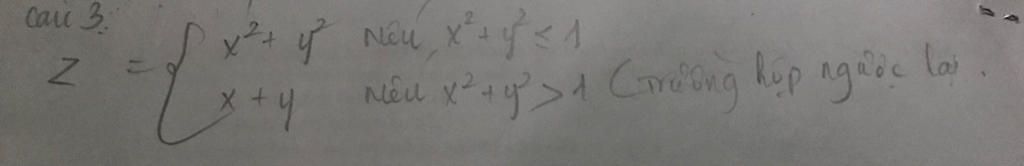 Câu 3.
z = { x² + y² nếu x² + y² ≤ 1
x + y nếu x² + y² > 1 (trường hợp ngược lại.